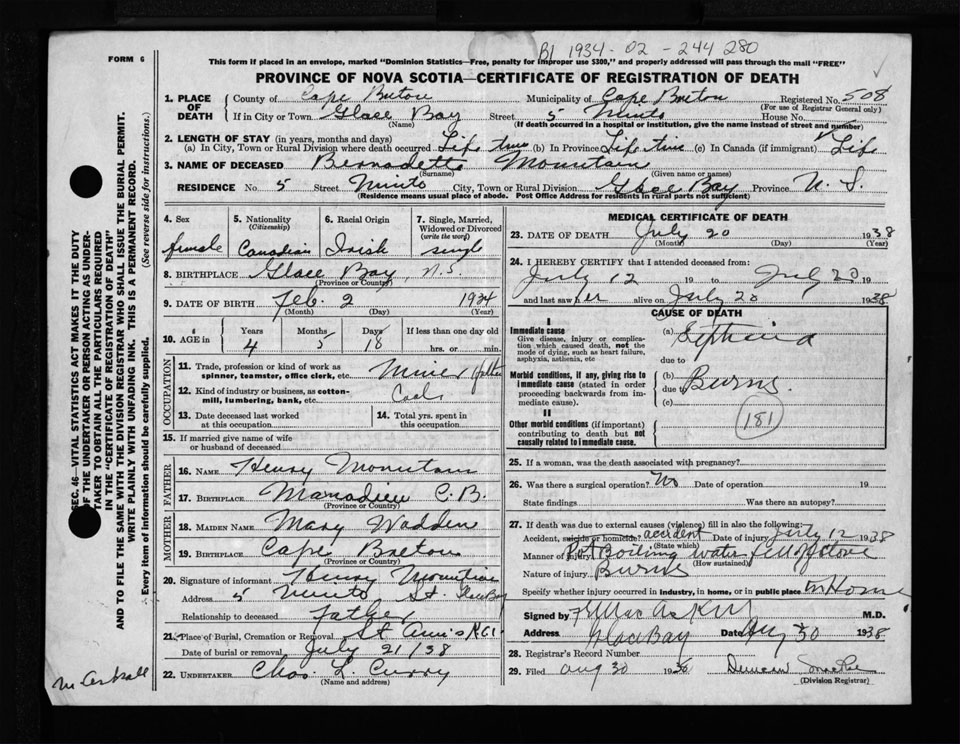 B1 1934-02-244280
FORM 6
This form if placed in an envelope, marked "Dominion Statistics—Free, penalty for improper use $300," and properly addressed will pass through the mail "FREE"
PROVINCE OF NOVA SCOTIA—CERTIFICATE OF REGISTRATION OF DEATH
SEC. 46—VITAL STATISTICS ACT MAKES IT THE DUTY
OF THE UNDERTAKER OR PERSON ACTING AS UNDER-
TAKER TO OBTAIN ALL THE PARTICULARS REQUIRED
IN THE "CERTIFICATE OF REGISTRATION OF DEATH"
AND TO FILE THE SAME WITH THE DIVISION REGISTRAR WHO SHALL ISSUE THE BURIAL PERMIT.
WRITE PLAINLY WITH UNFADING INK. THIS IS A PERMANENT RECORD.
Every item of information should be carefully supplied. (See reverse side for instructions.)
1. PLACE OF DEATH County of Cape Breton Municipality of Cape Breton Registered No. 508
If in City or Town Glace Bay Street 5 Minto House No.
(For use of Registrar General only)
(Name) (If death occurred in a hospital or institution, give the name instead of street and number)
2. LENGTH OF STAY (in years, months and days)
(a) In City, Town or Rural Division where death occurred Life time (b) In Province Life time (c) In Canada (if immigrant) Life
3. NAME OF DECEASED Bernadette Mountain
(Surname) (Given name or names)
RESIDENCE No. 5 Street Minto City, Town or Rural Division Glace Bay Province N. S.
(Residence means usual place of abode. Post Office Address for residents in rural parts not sufficient)
4. Sex 5. Nationality 6. Racial Origin 7. Single, Married,
(Citizenship) Widowed or Divorced
(write the word)
female Canadian Irish single
8. BIRTHPLACE Glace Bay, N.S.
(Province or Country)
9. DATE OF BIRTH Feb. 2 1934
(Month) (Day) (Year)
10. AGE in Years Months Days If less than one day old
4 5 18 hrs. or min.
OCCUPATION
11. Trade, profession or kind of work as
spinner, teamster, office clerk, etc. Miner father
12. Kind of industry or business, as cotton-
mill, lumbering, bank, etc. Coal
13. Date deceased last worked 14. Total yrs. spent in
at this occupation this occupation
15. If married give name of wife
or husband of deceased
FATHER
16. NAME Henry Mountain
17. BIRTHPLACE C.B.
(Province or Country)
MOTHER
18. MAIDEN NAME Mary Wadden
19. BIRTHPLACE Cape Breton
(Province or Country)
20. Signature of informant Henry Mountain
Address 5 Minto St. Glace Bay
Relationship to deceased father
21. Place of Burial, Cremation or Removal St Ann's
Date of burial or removal July 21/38
22. UNDERTAKER Chas L Curry
(Name and address)
MEDICAL CERTIFICATE OF DEATH
23. DATE OF DEATH July 20 1938
(Month) (Day) (Year)
24. I HEREBY CERTIFY that I attended deceased from:
July 12 19 to July 20 19
and last saw her alive on July 20 1938
CAUSE OF DEATH
I
Immediate cause (a)
Give disease, injury or complica-
tion which caused death, not the
mode of dying, such as heart failure,
asphyxia, asthenia, etc due to
Morbid conditions, if any, giving rise to (b) Burns.
immediate cause (stated in order due to
proceeding backwards from im-
mediate cause). (c)
II
181
Other morbid conditions (if important)
contributing to death but not
causally related to immediate cause.
25. If a woman, was the death associated with pregnancy?
26. Was there a surgical operation? No Date of operation 19
State findings Was there an autopsy?
27. If death was due to external causes (violence) fill in also the following:
Accident, suicide or homicide? accident Date of injury July 12 1938
(State which)
Manner of injury Pot Boiling water fell off stove
(How sustained)
Nature of injury Burns
Specify whether injury occurred in industry, in home, or in public place in Home
Signed by M.D.
Address Glace Bay Date Aug 30 1938
28. Registrar's Record Number
29. Filed Aug 30 1938 Duncan
(Division Registrar)